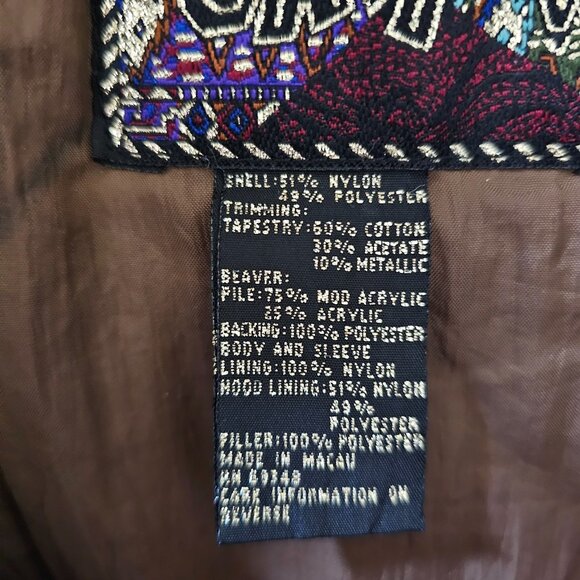 SHELL:51% NYLON
49% POLYESTER
TRIMMING:
TAPESTRY:60% COTTON
30% ACETATE
10% METALLIC
BEAVER:
PILE:75% MOD ACRYLIC
25% ACRYLIC
BACKING:100% POLYESTER
BODY AND SLEEVE
LINING:100% NYLON
HOOD LINING:51% NYLON
49%
POLYESTER
FILLER:100% POLYESTER
MADE IN MACAU
RN 69348
CARE INFORMATION ON
REVERSE